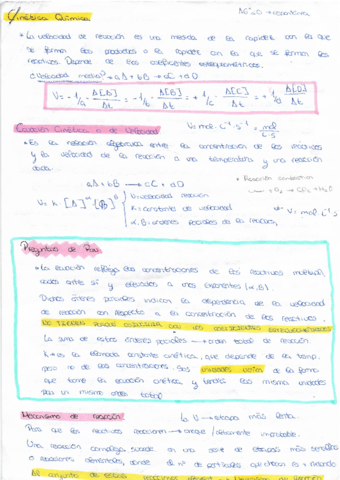 ΔG°<0 → espontánea
Cinética Química
• La velocidad de reacción es una medida de la rapidez con la que
se forman los productos o la rapidez con la que se forman los
reactivos. Depende de los coeficientes estequiométricos.
aA + bB → cC + dD
V = -1/a · Δ[A]/Δt = -1/b · Δ[B]/Δt = +1/c · Δ[C]/Δt = +1/d · Δ[D]/Δt
Ecuación Cinética o de Velocidad
V = mol · L⁻¹ · s⁻¹ = mol/L·s
• Es la relación algebraica entre la concentración de los reactivos
y la velocidad de la reacción a una temperatura y una reacción
dada.
aA + bB → cC + dD
• Reacción combustión
+ O₂ → CO₂ + H₂O
V = k · [A]^α · [B]^β
V: velocidad reacción
K: constante de velocidad
α, β: órdenes parciales de la reacción
V = mol L⁻¹ s
Preguntas de Pau
• La ecuación refleja las concentraciones de los reactivos multipli-
cados entre sí y elevados a unos exponentes (α, β).
Dichos órdenes parciales indican la dependencia de la velocidad
de reacción con respecto a la concentración de los reactivos.
NO TIENEN PORQUE COINCIDIR CON LOS COEFICIENTES ESTEQUIOMÉTRICOS
La suma de estos órdenes parciales → orden total de reacción
K → es la llamada constante cinética, que depende de la temp.
pero no de las concentraciones. Sus unidades dependen de la forma
que tome la ecuación cinética, y tendrá las mismas unidades
para un mismo orden total
Mecanismo de reacción:
la V → etapa más lenta.
Para que los reactivos reaccionen → choque
Una reacción compleja sucede en una serie de etapas más sencillas
o reacciones elementales, donde el nº de partículas que chocan es
Al conjunto de estas reacciones